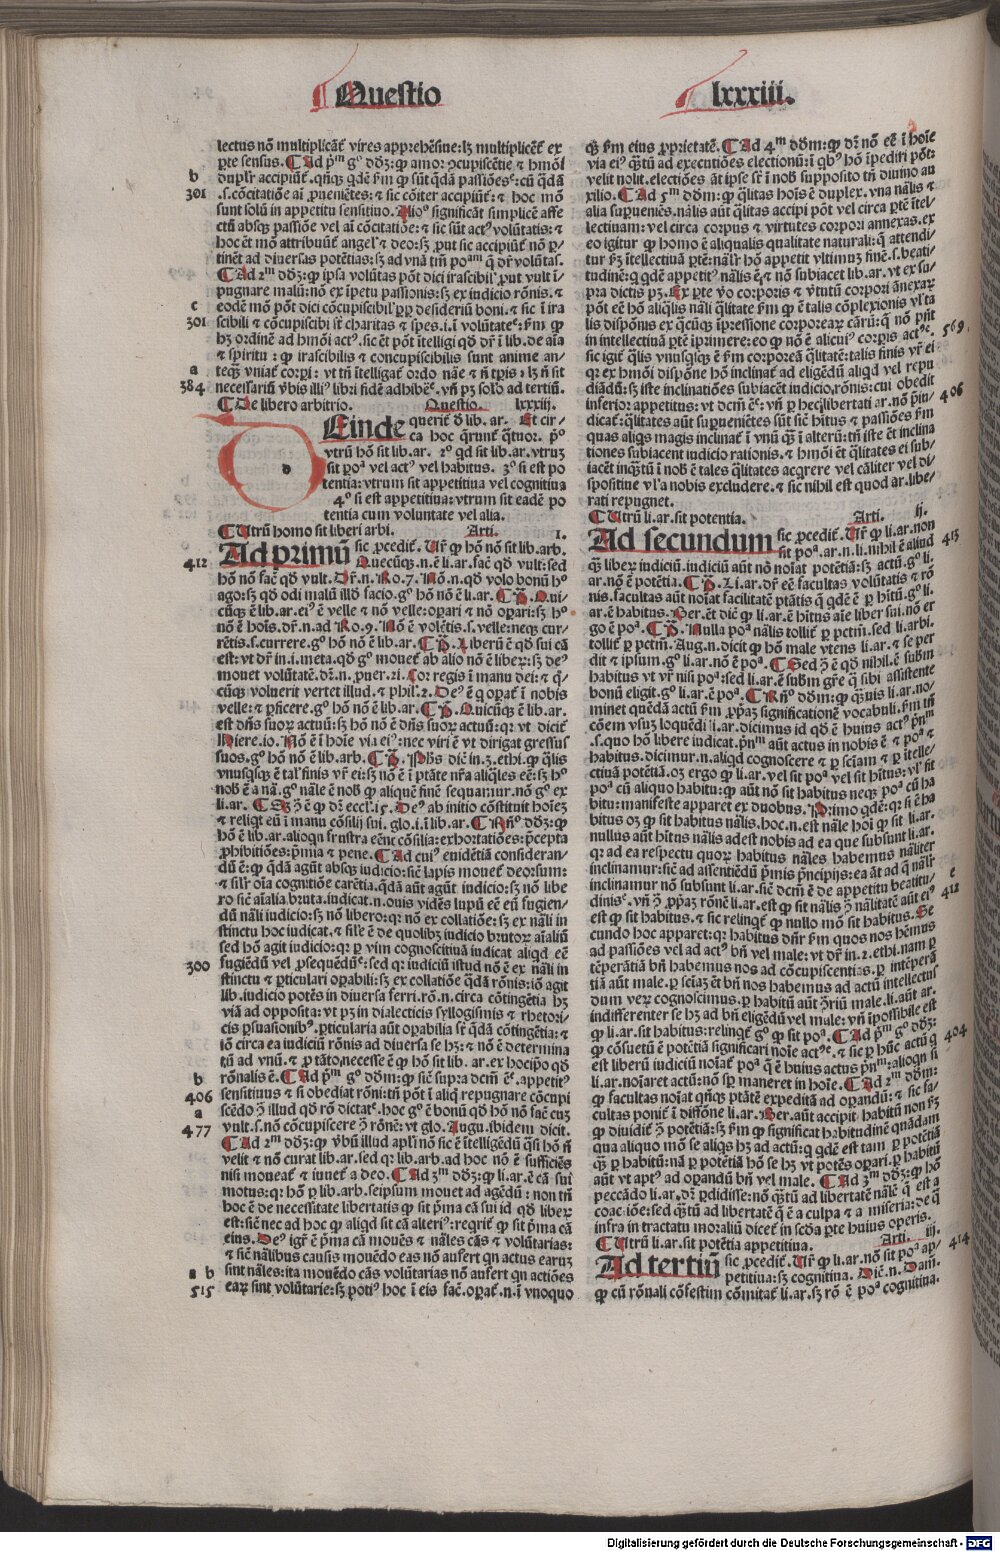 Questio lxxxiii.
lectus nō multiplicāt̄ vires apprehēsiue: lꝫ multiplicēt̄ ex
pte sensus. Ad pᵐ gº ddꝫ: ꝙ amor ↄcupiscētie ⁊ hmōi
b
301
.s. cōcitatiōe aī ꝓueniētes: ⁊ sic cōiter accipiūt̄: ⁊ hoc mō
sunt solū in appetitu sensitiuo. Alioº significāt simplicē affe
ctū absqꝫ passiōe vel aī cōcitatiōe: ⁊ sic sūt actꝰ volūtatis: ⁊
hoc ēt mō attribuūt̄ angelꝭ ⁊ deo: sꝫ ꝓut sic accipiūt̄ nō ꝑ-
tinēt ad diuersas potētias: sꝫ ad vnā tm̄ poᵃᵐ q̄ dr̄ volūtas.
Ad 2ᵐ ddꝫ: ꝙ ipsa volūtas pōt dici irascibilꝭ ꝓut vult ī-
pugnare malū: nō ex īpetu passionis: sꝫ ex iudicio rōnis. ⁊
c
301
eodē mō pōt dici cōcupiscibilꝭ ꝓꝑ desideriū boni. ⁊ sic ī ira
scibili ⁊ cōcupiscibi st̄ charitas ⁊ spes. i. ī volūtateꝰ: ẜm ꝙ
hꝫ ordinē ad hmōi actꝰ. sic ēt pōt ītelligi qd̄ dr̄ ī lib. de aīa
⁊ spiritu: ꝙ irascibilis ⁊ concupiscibilis sunt anime an-
a
384
teqꝫ vniat̄ corpi: vt tn̄ ītelligat̄ ordo nāe ⁊ nō tpris, lꝫ nō sit
necessariū v̄bis illiꝰ libri fidē adhibēꝰ. vn̄ pꝫ solº ad tertiū.
De libero arbitrio. Questio. lxxxiij.
Deinde querit̄ d̄ lib. ar. Et cir-
ca hoc q̄runt̄ q̄tuor. pº
vtrū hō sit lib. ar. 2º qd sit lib. ar. vtrūꝫ
sit poᵃ vel actꝰ vel habitus. 3º si est po
tentia: vtrum sit appetitiua vel cognitiua
4º si est appetitiua: vtrum sit eadē po
tentia cum voluntate vel alia.
Utrū homo sit liberi arbi. Arti. 1.
412
Ad primū sic ꝓcedit̄. Ur̄ ꝙ hō nō sit lib. arb.
Quecūqꝫ. n. ē li. ar. fac̄ qd̄ vult: sed
hō nō fac̄ qd̄ vult. Dr̄. n. Ro. 7. Nō. n. qd̄ volo bonū hº
ago: sꝫ qd̄ odi malū illd̄ facio. gº hō nō ē li. ar. P̄. Qui-
cūqꝫ ē lib. ar. eiꝰ ē velle ⁊ nō velle: oꝑari ⁊ nō oꝑari: sꝫ hº
nō ē hoīs. dr̄. n. ad Ro. 9. Nō ē volētis. s. velle: neqꝫ cur-
rētis. s. currere. gº hō nō ē lib. ar. P̄. Liberū ē qd̄ sui cā
est: vt dr̄ in. i. meta. qd̄ gº mouet̄ ab alio nō ē liber: sꝫ deꝰ
mouet volūtatē. dr̄. n. puer. 21. Cor regis ī manu dei: ⁊ q̄-
cūqꝫ voluerit vertet illud. ⁊ phil. 2. Deꝰ ē q oꝑat̄ ī nobis
velle: ⁊ ꝑficere. gº hō nō ē lib. ar. P̄. Quicūqꝫ ē lib. ar.
est dn̄s suoꝝ actuū: sꝫ hō nō ē dn̄s suoꝝ actuū: qꝛ vt dicit̄
Hiere. 10. Nō ē ī hoīe via eiꝰ: nec viri ē vt dirigat gressus
suos. gº hō nō ē lib. arb. P̄. Phs dic̄ in. 3. ethi. ꝙ qlis
vnusqsqꝫ ē talꝭ finis vr̄ ei: sꝫ nō ē ī ptāte nr̄a aliqles eē: sꝫ hº
nob̄ ē a nā. gº nāle ē nob̄ ꝙ aliquē finē sequamur. nō gº ex
li. ar. Sꝫ ↄ̄ ē ꝙ dr̄ eccl. 15. Deꝰ ab initio cōstituit hoīeꝫ
⁊ reliqt eū ī manu cōsilij sui. glo. i. ī lib. ar. Rn̄º ddꝫ: ꝙ
hō ē lib. ar. alioqn frustra eēnt cōsilia: exhortatiōes: pcepta
ꝓhibitiōes: pmia ⁊ pene. Ad cuiꝰ euidētiā consideran-
dū ē: ꝙ qdā agūt absqꝫ iudicio: sic̄ lapis mouet̄ deorsum:
⁊ silr oīa cognitiōe carētia. qdā aūt agūt iudicio: sꝫ nō libe
ro sic̄ aīalia bruta. iudicat. n. ouis vidēs lupū eē eū fugien-
dū nāli iudicio: sꝫ nō libero: qꝛ nō ex collatiōe: sꝫ ex nāli in
stinctu hoc iudicat. ⁊ sile ē de quolibꝫ iudicio brutoꝝ aīaliū
sed hō agit iudicio: qꝛ ꝑ vim cognoscitiuā iudicat aliqd eē
300
fugiēdū vel ꝓsequēdū: sed qꝛ iudiciū istud nō ē ex nāli in
stinctu ⁊ ꝑticulari oꝑabili: sꝫ ex collatiōe qdā rōnis: iō agit
lib. iudicio potēs in diuersa ferri. rō. n. circa cōtingētia hꝫ
viā ad opposita: vt pꝫ in dialecticis syllogismis ⁊ rhetori-
cis ꝑsuasionibꝰ. ꝑticularia aūt oꝑabilia st̄ qdā cōtingētia: ⁊
iō circa ea iudiciū rōnis ad diuersa se hꝫ: ⁊ nō ē determina
tū ad vnū. ⁊ ꝓ tāto, necesse ē ꝙ hō sit lib. ar. ex hocipo qd̄
b
rōnalis ē. Ad pᵐ gº ddm: ꝙ sic̄ supra dcm̄ ē. appetitꝰ
406
sensitiuus ⁊ si obediat rōni: tn̄ pōt ī aliq repugnare cōcupi
a
scēdo ↄ̄ illud qd̄ rō dictat. hoc gº ē bonū qd̄ hō nō fac̄ cuꝫ
477
vult. s. nō cōcupiscere ↄ̄ rōnē: vt glo. Augu. ibidem dicit.
Ad 2ᵐ ddꝫ: ꝙ v̄bū illud apli nō sic ē ītelligēdū q̄si hō nō
velit ⁊ nō curat lib. ar. sed qꝛ lib. arb. ad hoc nō ē sufficiēs
nisi moueat̄ ⁊ iuuet̄ a deo. Ad 3ᵐ ddꝫ: ꝙ li. ar. ē cā sui
motus: qꝛ hō ꝑ lib. arb. seipsum mouet ad agēdū: non tn̄
hoc ē de necessitate libertatis ꝙ sit pma cā sui id qd̄ liber̄
est: sic̄ nec ad hoc ꝙ aliqd sit cā alteriꝰ: reqrit̄ ꝙ sit pma cā
eius. Deꝰ igr̄ ē pma cā mouēs ⁊ nāles cās ⁊ volūtarias:
⁊ sic̄ nālibus causis mouēdo eas nō aufert qn actus earuꝫ
a b
sint nāles: ita mouēdo cās volūtarias nō aufert qn actiōes
515
earꝝ sint volūtarie: sꝫ potiꝰ hoc ī eis fac̄. oꝑat̄. n. ī vnoquo
qꝫ ẜm eius ꝓprietatē. Ad 4ᵐ ddm: ꝙ dr̄ nō eē ī hoīe
via eiꝰ q̄tū ad executiōes electionū: ī qbꝰ hō īpediri pōt:
velit nolit. electiōes aūt ipse st̄ ī nob̄ supposito tn̄ diuino au
xilio. Ad 5ᵐ ddm: ꝙ qlitas hoīs ē duplex. vna nālis ⁊
alia supueniēs. nālis aūt qlitas accipi pōt vel circa ptē ītel-
lectiuam: vel circa corpus ⁊ virtutes corpori annexas. ex
eo igitur ꝙ homo ē aliqualis qualitate naturali: q̄ attendi-
tur ẜm ītellectiuā ptē: nālr̄ hō appetit vltimuꝫ finē. s. beati-
tudinē: q qdē appetitꝰ nālis ē, ⁊ nō subiacet lib. ar. vt ex su-
pra dictis pꝫ. Ex pte v̄o corporis ⁊ v̄tutū corpori anexaꝝ
pōt eē hō aliqlis nāli qlitate ẜm ꝙ ē talis cōplexionis vl ta
lis dispōnis ex qcūqꝫ īpressione corporeaꝝ cārū: q̄ nō pn̄t
569.
in intellectiuā ptē īprimere: eo ꝙ nō ē alicuiꝰ corpis actꝰ.
sic igit̄ qlis vnusqsqꝫ ē ẜm corporeā qlitatē: talis finis vr̄ ei
qꝛ ex hmōi dispōne hō inclinat̄ ad eligēdū aliqd vel repu
diādū: sꝫ iste inclinatiōes subiacēt iudicio, rōnis: cui obedit
406
inferior appetitus: vt dcm̄ ē: vn̄ ꝑ hec libertati ar. nō piu-
dicat̄: qlitates aūt supueniētes sūt sic̄ hītus ⁊ passiōes ẜm
quas aliqs magis inclinat̄ ī vnū q̄ ī alterū: tn̄ iste ēt inclina
tiones subiacent iudicio rationis. ⁊ hmōi ēt qlitates ei sub-
iacēt inq̄tū ī nob̄ ē tales qlitates acqrere vel cāliter vel di-
spositiue vl a nobis excludere. ⁊ sic nihil est quod ar. liber-
rati repugnet.
Utrū li. ar. sit potentia. Arti. ij.
413
Ad secundum sic ꝓcedit̄. Ur̄ ꝙ li. ar. non
sit poᵃ. ar. n. li. nihil ē aliud
q̄ liber̄ iudiciū. iudiciū aūt nō noīat potētiā: sꝫ actū. gº li.
ar. nō ē potētia. P̄. Li. ar. dr̄ eē facultas volūtatis ⁊ rō
nis. facultas aūt noīat facilitatē ptātis q̄ qdē ē ꝑ hītū. gº li.
ar. ē habitus. Ber. ēt dic̄ ꝙ li. ar. ē hītus aīe liber sui. nō er
go ē poᵃ. P̄. Nulla poᵃ nālis tollit̄ ꝑ pctm̄. sed li. arbi.
tollit̄ ꝑ pctm̄. Aug. n. dicit ꝙ hō male vtens li. ar. ⁊ se per
dit ⁊ ipsum. gº li. ar. nō ē poᵃ. Sed ↄ̄ ē qd̄ nihil. ē subm
habitus vt vr̄ nisi poᵃ: sed li. ar. ē subm gr̄e q sibi assistente
bonū eligit. gº li. ar. ē poᵃ. Rn̄º ddm: ꝙ q̄uis li. ar. no-
minet quēdā actū ẜm ꝓpꝝaꝫ significationē vocabuli. ẜm tn̄
cōem vsuꝫ loquēdi li. ar. dicimus id qd̄ ē huius actꝰ pn̄ᵐ
.s. quo hō libere iudicat. pn̄ᵐ aūt actus in nobis ē ⁊ poᵃ ⁊
habitus. dicimur. n. aliqd cognoscere ⁊ ꝑ sciam ⁊ ꝑ itelle-
ctiuā potētiā. oꝫ ergo ꝙ li. ar. vel sit poᵃ vel sit hītus: vl sit
poᵃ cū aliquo habitu: ꝙ aūt nō sit habitus neqꝫ poᵃ cū ha
bitu: manifeste apparet ex duobus. Primo qdē: qꝛ si ē ha
bitus oꝫ ꝙ sit habitus nālis. hoc. n. est nāle hoī ꝙ sit li. ar.
nullus aūt hītus nālis adest nobis ad ea que subsunt li. ar.
qꝛ ad ea respectu quoꝝ habitus nāles habemus nāliter
inclinamur: sic̄ ad assentiēdū pmis pncipijs: ea āt ad q̄ nālr̄
c
inclinamur nō subsunt li. ar. sic̄ dcm̄ ē de appetitu beatitu-
412
dinis. vn̄ ↄ̄ ꝓpꝝaꝫ rōnē li. ar. est ꝙ sit nālis ↄ̄ nālitatē aūt eiꝰ
est ꝙ sit habitus. ⁊ sic relinqt̄ ꝙ nullo mō sit habitus. Se
cundo hoc apparet: qꝛ habitus dn̄r ẜm quos nos hēmus
ad passiōes vel ad actꝰ bn̄ vel male: vt dr̄ in. 2. ethi. nam ꝑ
tēperātiā bn̄ habemus nos ad cōcupiscentias. ꝑ intēperā
tiā aūt male. ꝑ sciaꝫ ēt bn̄ nos habemus ad actū intellectus
dum veꝝ cognoscimus. ꝑ habitū aūt ↄ̄riū male. li. aūt ar.
indifferenter se hꝫ ad bn̄ eligēdū vel male: vn̄ īpossibile est
ꝙ li. ar. sit habitus: relinqt̄ gº ꝙ sit poᵃ. Ad pᵐ gº ddꝫ:
404
ꝙ cōsuetū ē potētiā significari noīe actꝰ. ⁊ sic ꝑ hūc actū q
est liberū iudiciū noīat̄ poᵃ q̄ ē huius actus pn̄ᵐ: alioqn si
li. ar. noīaret actū: nō sp maneret in hoīe. Ad 2ᵐ ddm:
ꝙ facultas noīat qn̄qꝫ ptātē expeditā ad oꝑandū: ⁊ sic fa-
cultas ponit̄ ī diffōne li. ar. Ber. aūt accipit habitū non ẜm
ꝙ diuidit̄ ↄ̄ potētiā: sꝫ ẜm ꝙ significat habitudinē quādam
qua aliquo mō se aliqs hꝫ ad actū: q qdē est tam ꝑ potētiā
q̄ ꝑ habitū: nā ꝑ potētiā hō se hꝫ vt potēs oꝑari. ꝑ habitū
aūt vt aptꝰ ad oꝑandū bn̄ vel male. Ad 3ᵐ ddꝫ: ꝙ hō
peccādo li. ar. dr̄ pdidisse: nō q̄tū ad libertatē nālē q̄ est a
coactiōe: sed q̄tū ad libertatē q̄ ē a culpa ⁊ a miseria: de q̄
infra in tractatu moraliū dicet̄ in scd̄a pte huius operis.
Utrū li. ar. sit potētia appetitiua. Arti. iij.
414
Ad tertiū sic ꝓcedit̄. Ur̄ ꝙ li. ar. nō sit poᵃ ap-
petitiua: sꝫ cognitiua. Dic̄. n. Dam̄.
ꝙ cū rōnali cōfestim cōmitat̄ li. ar. sꝫ rō ē poᵃ cognitiua.
Digitalisierung gefördert durch die Deutsche Forschungsgemeinschaft - DFG